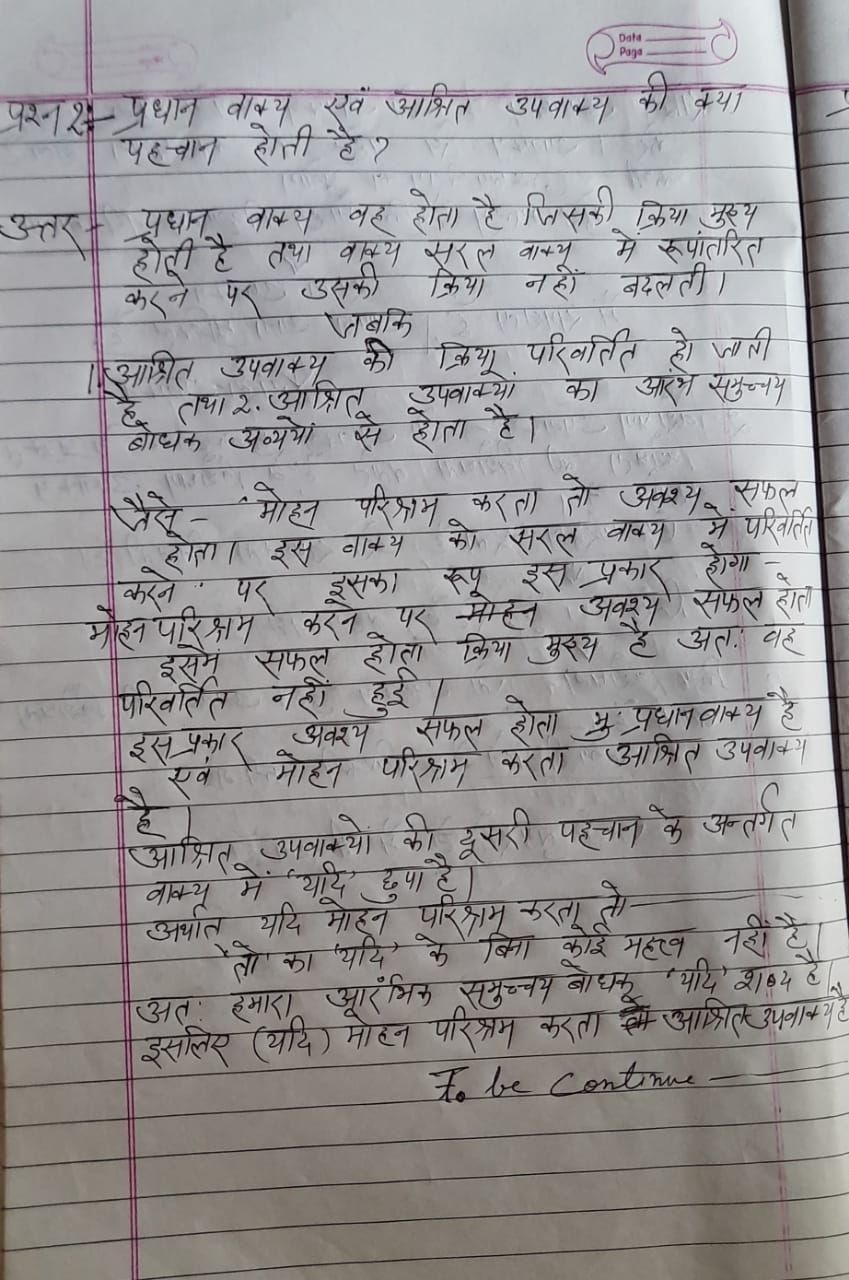 Data
Page
प्रश्न 2:- प्रधान वाक्य एवं आश्रित उपवाक्य की क्या
पहचान होती है?
उत्तर - प्रधान वाक्य वह होता है जिसकी क्रिया मुख्य
होती है तथा वाक्य सरल वाक्य में रूपांतरित
करने पर उसकी क्रिया नहीं बदलती।
जबकि
1. आश्रित उपवाक्य की क्रिया परिवर्तित हो जाती
है तथा 2. आश्रित उपवाक्यों का आरंभ समुच्चय
बोधक अव्ययों से होता है।
जैसे - 'मोहन परिश्रम करता तो अवश्य सफल
होता। इस वाक्य को सरल वाक्य में परिवर्तित
करने पर इसका रूप इस प्रकार होगा -
मोहन परिश्रम करने पर मोहन अवश्य सफल होता
इसमें सफल होता क्रिया मुख्य है अत: वह
परिवर्तित नहीं हुई।
इस प्रकार अवश्य सफल होता प्रधान वाक्य है
एवं मोहन परिश्रम करता आश्रित उपवाक्य
है।
आश्रित उपवाक्यों की दूसरी पहचान के अन्तर्गत
वाक्य में 'यदि' छुपा है।
अर्थात यदि मोहन परिश्रम करता तो
'तो' का 'यदि' के बिना कोई महत्व नहीं है।
अत: हमारा आरंभिक समुच्चय बोधक 'यदि' शब्द है।
इसलिए (यदि) मोहन परिश्रम करता आश्रित उपवाक्य है
To be Continue